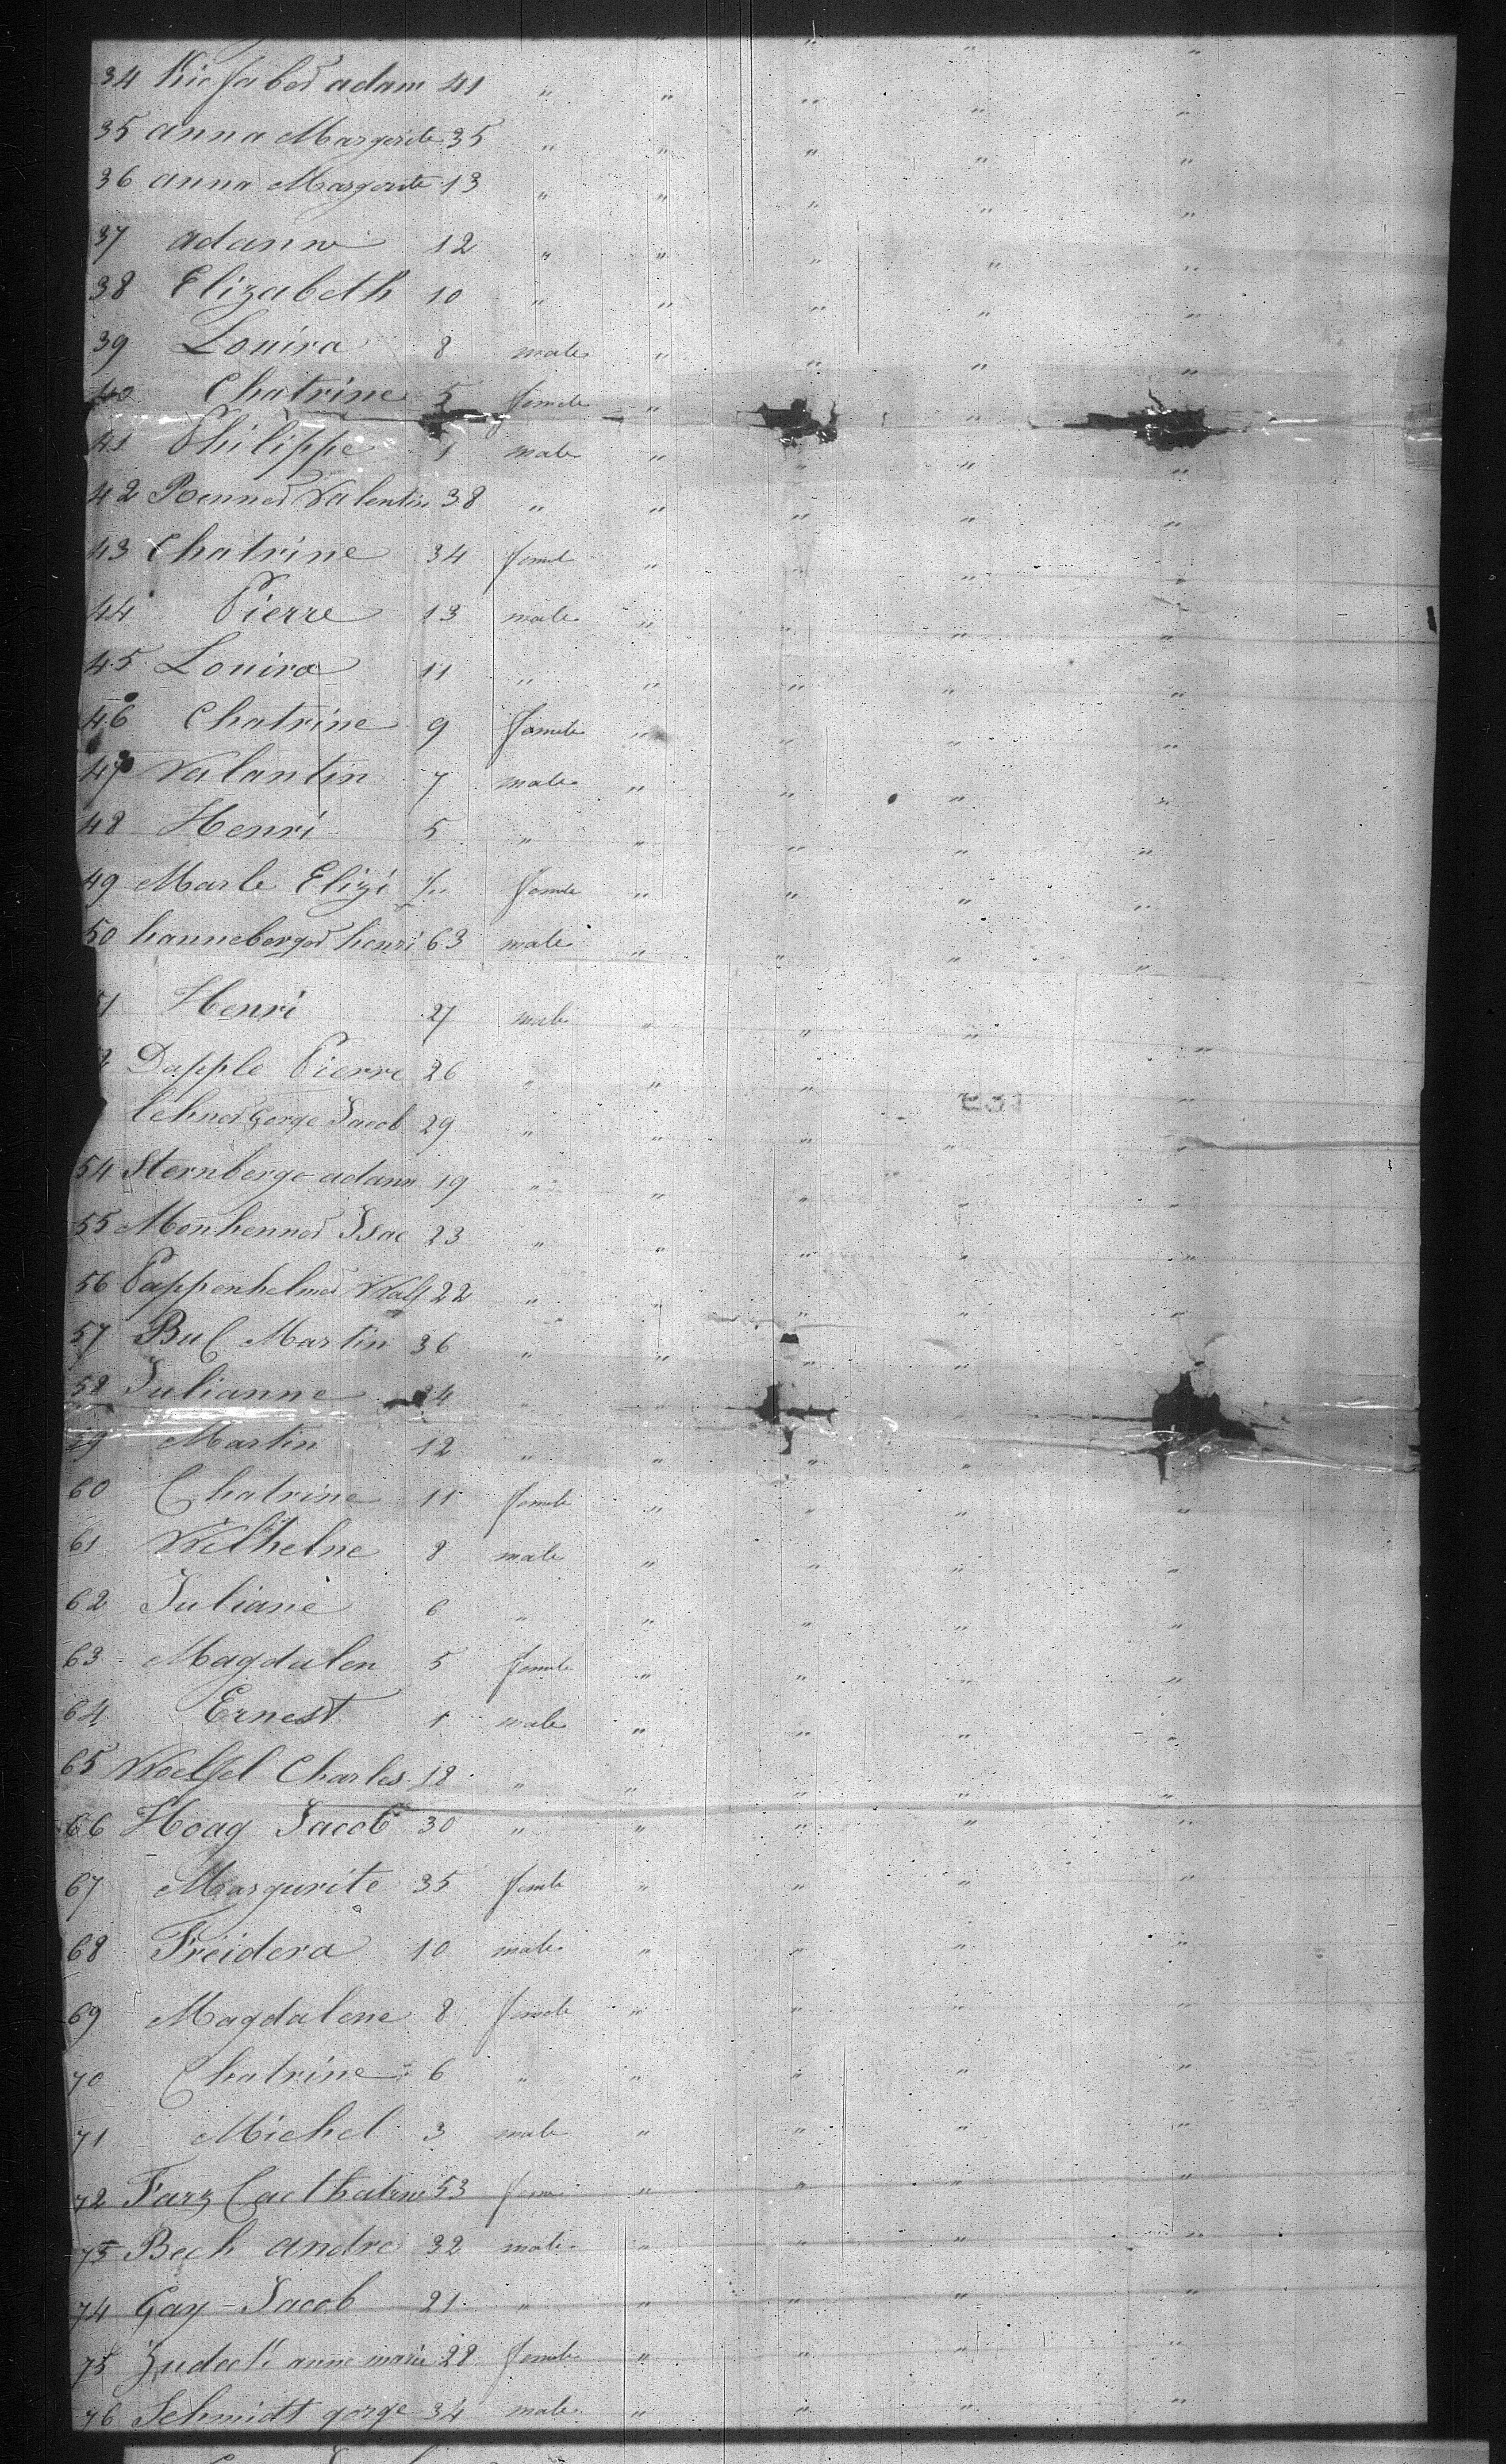 34 Kiefaber adam 41 " " " " "
35 anna Margerite 35 " " " " "
36 anna Margerite 13 " " " " "
37 adanne 12 " " " " "
38 Elizabeth 10 " " " " "
39 Louira 8 male " " " "
40 Chatrine 5 female " "
41 Philippe 1 male " " " "
42 Renner Valentin 38 " " " " "
43 Chatrine 34 femal " " " "
44 Pierre 13 male " " " "
45 Louira 11 " " " " "
46 Chatrine 9 female " " " "
47 Valantin 7 male " " " "
48 Henri 5 " " " " "
49 Marle Elizi female " " " "
50 hanneberger henri 63 male " " " "
51 Henri 27 male " " " "
Dapple Pierre 26 " " " "
lehner Gorge Jacob 29 " " " " "
54 Sternberge adam 19 " " " " "
55 Monhenner Isac 23 " " " " "
56 Pappenhelmer Walf 22 " " " " "
57 Bul Martin 36 " " " "
58 Julianne 34 " "
59 Martin 12 " " " "
60 Chatrine 11 female " " " "
61 Wilhelne 8 male " " " "
62 Juliane 6 " " " " "
63 Magdalen 5 female " " " "
64 Ernest 1 male " " " "
65 Woelfel Charles 18 " " " " "
66 Hoag Jacob 30 " " " " "
67 Margurite 35 femle " " " "
68 Freidera 10 male " " " "
69 Magdalene 8 female " " " "
70 Chatrine 6 " " " " "
71 Michel 3 male " " " "
72 Farz Cacthatrine 53 fem " " " "
73 Bech andre 32 male " " " "
74 Gay - Jacob 21 " " " " "
75 anne marie 28 female " " " "
76 Schmidt gorge 34 male " " " "